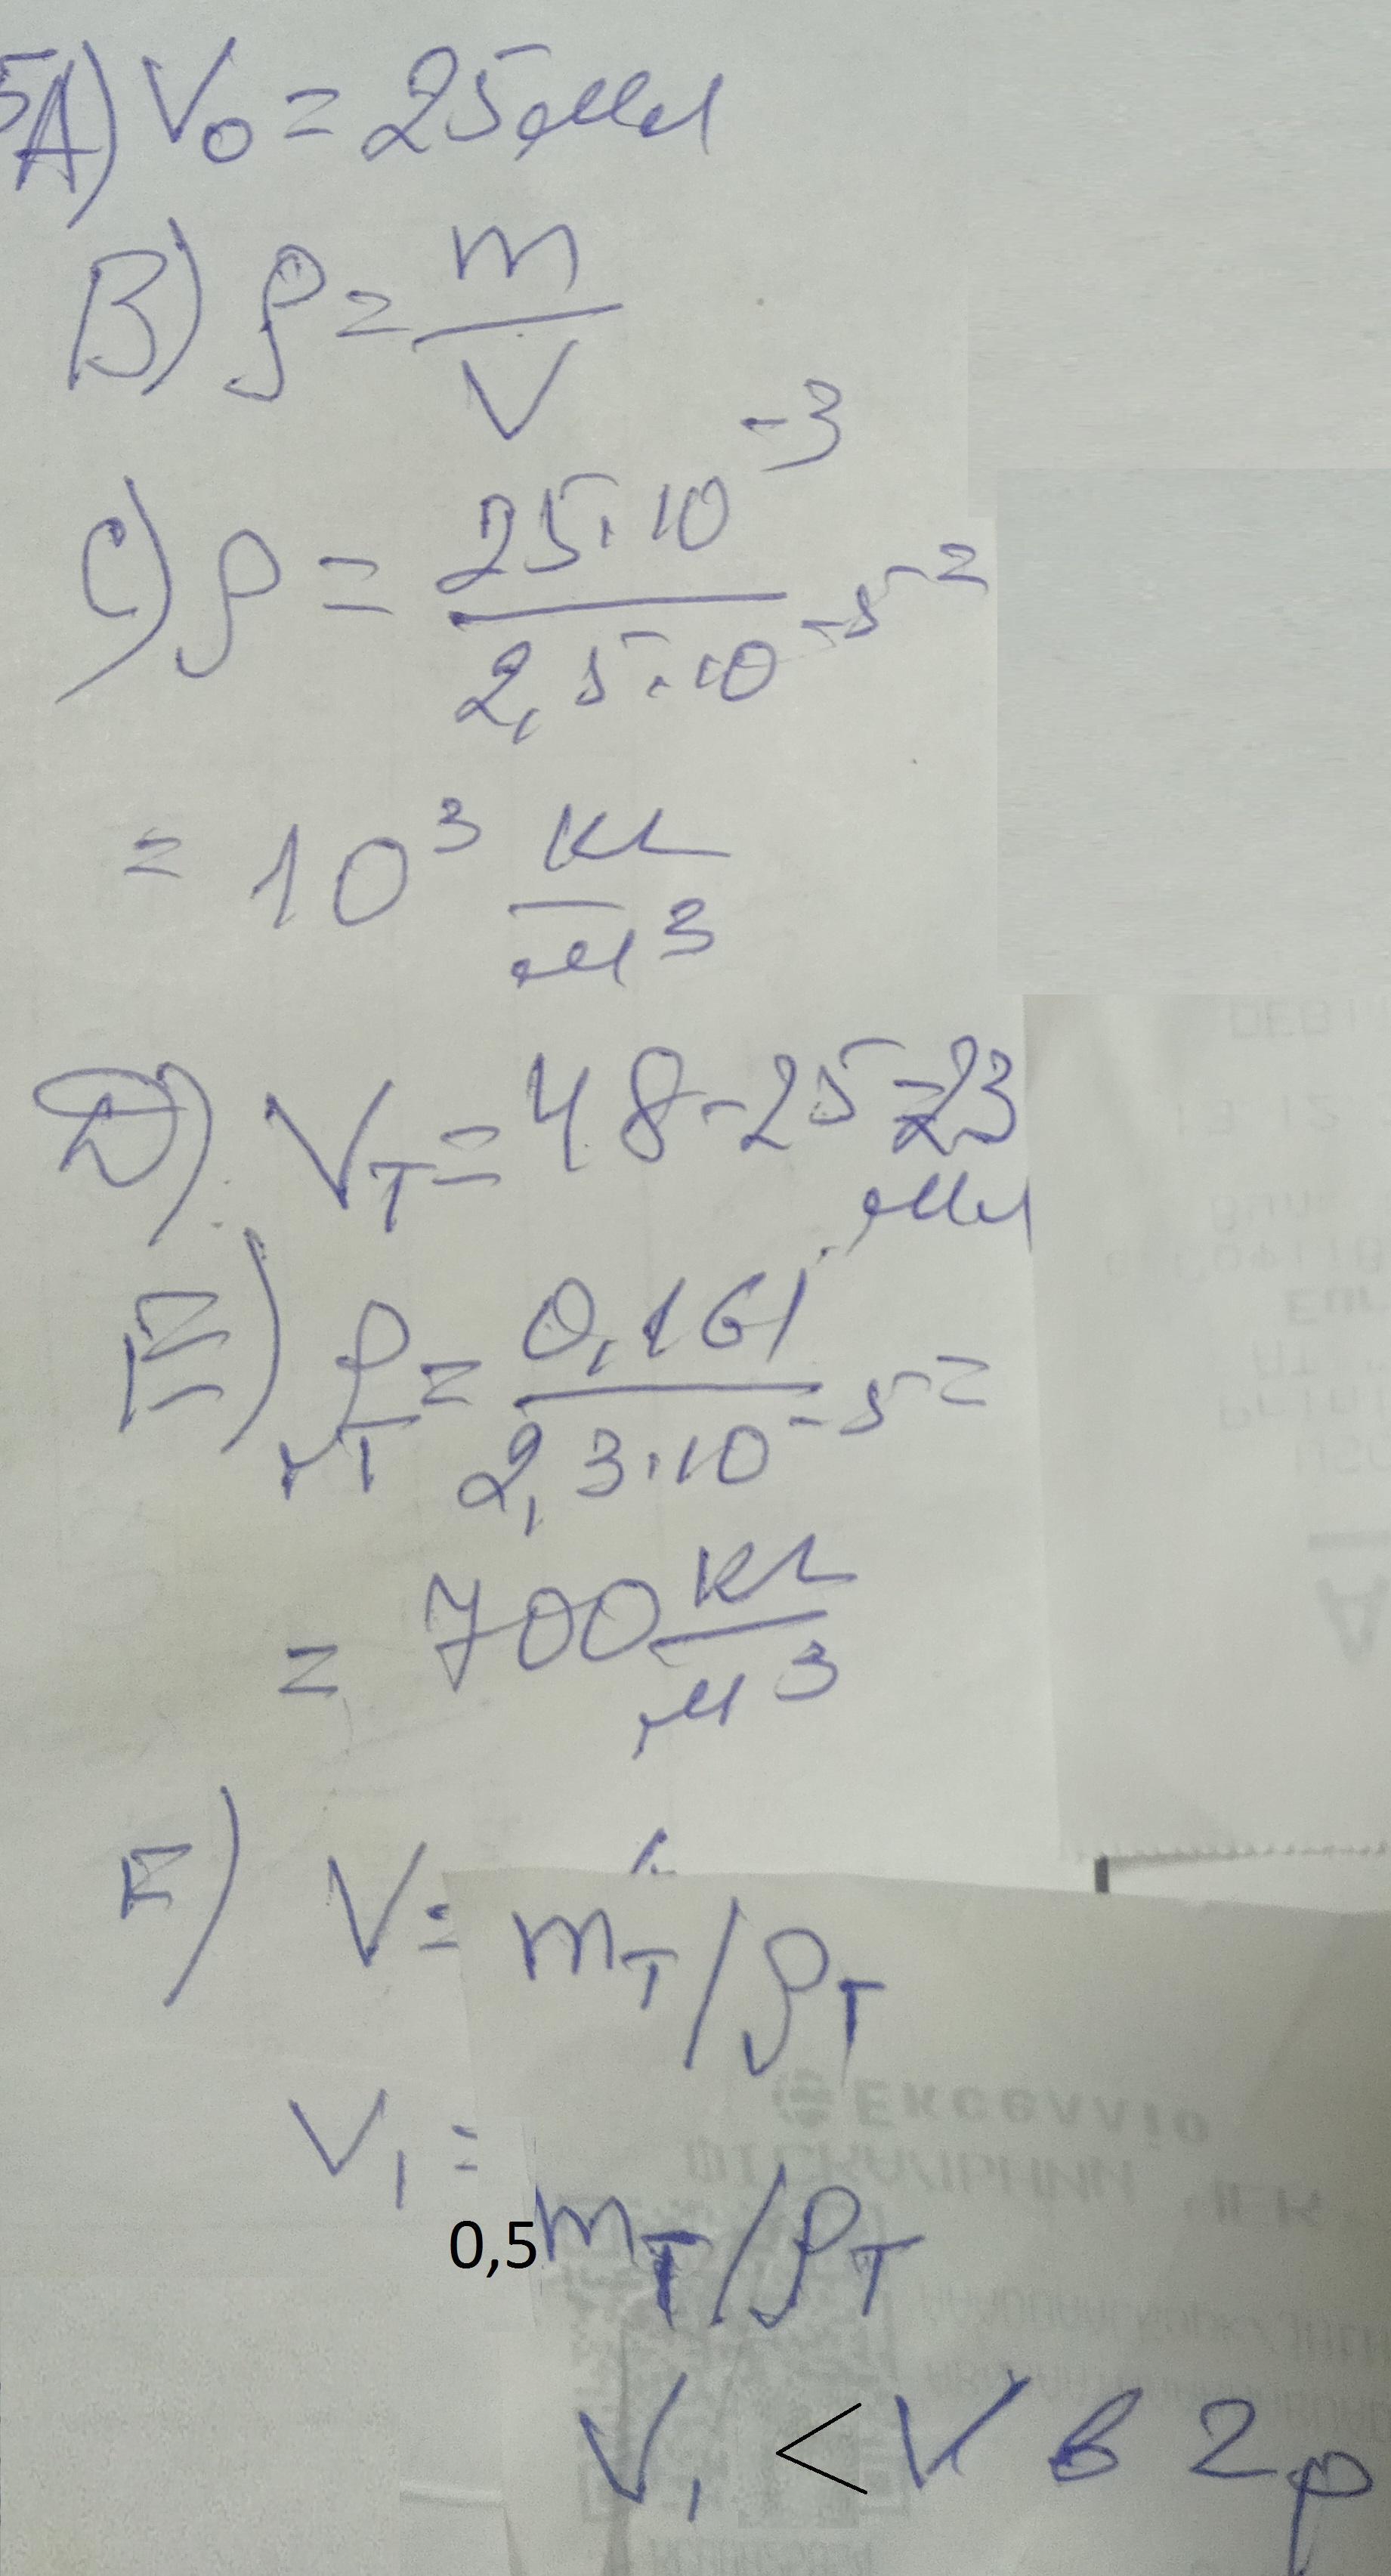 5A) V₀ = 25 мл
B) ρ = m/V
C) ρ = 25·10⁻³/2,5·10⁻⁵ =
= 10³ кг/м³
D) Vт = 48-25=23 мл
E) ρт = 0,161/2,3·10⁻⁵ =
= 700 кг/м³
F) V = mт/ρт
V₁ =
0,5mт/ρт
V₁ < V в 2р